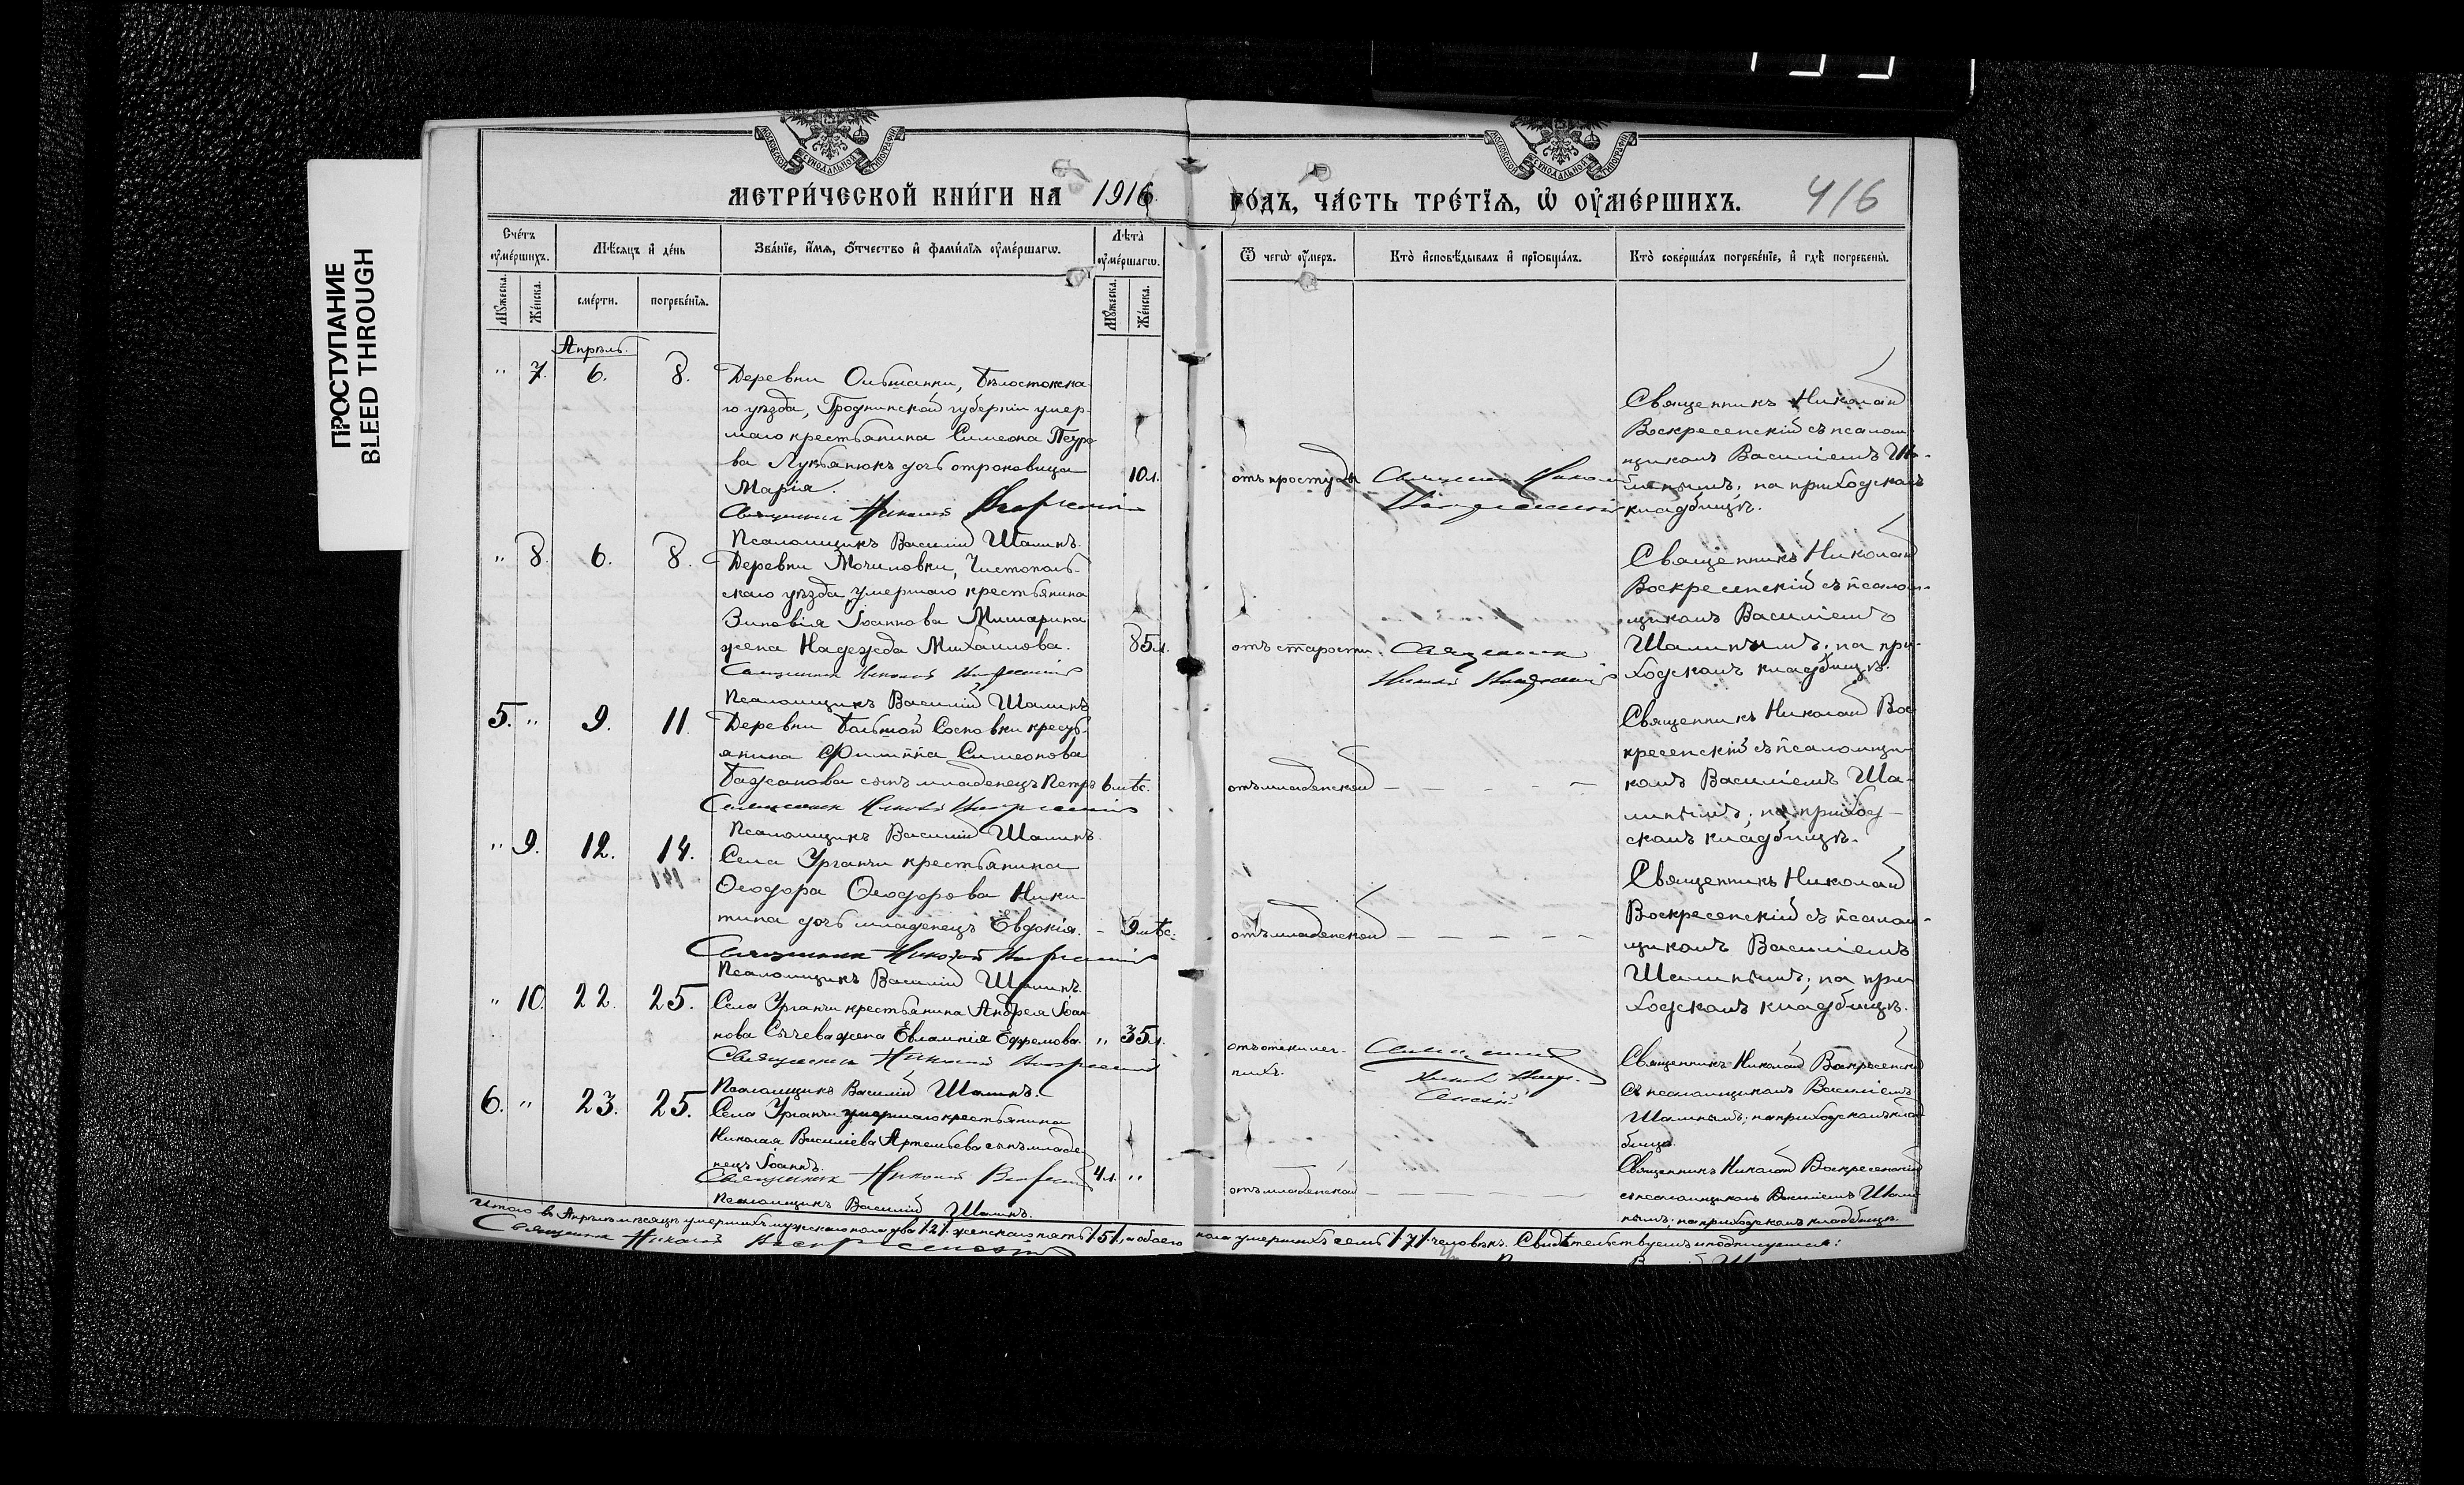 ПРОСТУПАНИЕ
BLEED THROUGH
МОСКОВСКОЙ СѴНОДАЛЬНОЙ ТИПОГРАФІИ
МОСКОВСКОЙ СѴНОДАЛЬНОЙ ТИПОГРАФІИ
МЕТРИ́ЧЕСКОЙ КНИ́ГИ НА 1916 ГО́ДЪ, ЧА́СТЬ ТРЕ́ТЇЯ, Ѡ҆ ОУ҆МЕ́РШИХЪ. 416
Сче́тъ оу҆ме́ршихъ.
Мꙋ́жеска.
Же́нска.
Мѣ́сяцъ и҆ де́нь
сме́рти.
погребе́нїя.
Зва́нїе, и҆́мя, ѻ҆́тчество и҆ фами́лїя оу҆ме́ршагѡ.
Лѣ́та оу҆ме́ршагѡ.
Мꙋ́жеска.
Же́нска.
Ѿ чегѡ̀ оу҆́меръ.
Кто̀ и҆сповѣ́дывалъ и҆ прїѡбща́лъ.
Кто̀ соверша́лъ погребе́нїе, и҆ гдѣ̀ погребены̀.
Апрѣль.
" 7. 6. 8. Деревни Ольшанки, Бѣлостокска-
го уѣзда, Гродненской губерніи умер-
шаго крестьянина Симеона Петро-
ва Лукьянюкъ дочь отроковица
Марія. 10 л.
Священникъ Николай Воскресенскій
Псаломщикъ Василій Шалинъ.
отъ простуды
Священникъ Николай
Воскресенскій
Священникъ Николай
Воскресенскій съ псалом-
щикомъ Василіемъ Ша-
линымъ; на приходскомъ
кладбищѣ.
" 8. 6. 8. Деревни Мочиловки, Чистополь-
скаго уѣзда, умершаго крестьянина
Зиновія Іоаннова Мишарина
жена Надежда Михаилова. 85 л.
Священникъ Николай Воскресенскій
Псаломщикъ Василій Шалинъ
отъ старости.
Священникъ
Николай Воскресенскій
Священникъ Николай
Воскресенскій съ псалом-
щикомъ Василіемъ
Шалинымъ; на при-
ходскомъ кладбищѣ.
5. " 9. 11. Деревни Большой Сосновки кресть-
янина Филиппа Симеонова
Бажанова сынъ младенецъ Петръ 6 мѣс.
Священникъ Николай Воскресенскій
Псаломщикъ Василій Шалинъ.
отъ младенской
Священникъ Николай Вос-
кресенскій съ псаломщи-
комъ Василіемъ Ша-
линымъ; на приход-
скомъ кладбищѣ.
" 9. 12. 14. Села Урганчи крестьянина
Ѳеодора Ѳеодорова Ники-
тина дочь младенецъ Евдокія. - 9 мѣс.
Священникъ Николай Воскресенскій
Псаломщикъ Василій Шалинъ.
отъ младенской
Священникъ Николай
Воскресенскій съ псалом-
щикомъ Василіемъ
Шалинымъ; на при-
ходскомъ кладбищѣ.
" 10. 22. 25. Села Урганчи крестьянина Андрея Іоан-
нова Сычева жена Евлампія Ефремова. " 35 л.
Священникъ Николай Воскресенскій
Псаломщикъ Василій Шалинъ.
Священникъ
Николай Воскре-
сенскій
Священникъ Николай Воскресенскій
съ псаломщикомъ Василіемъ
Шалинымъ; на приходскомъ клад-
бищѣ.
6. " 23. 25. Села Урганчи умершаго крестьянина
Николая Василіева Артемьева сынъ младе-
нецъ Іоаннъ. 4 л. "
Священникъ Николай Воскресенскій
Псаломщикъ Василій Шалинъ.
отъ младенской
Священникъ Николай Воскресенскій
съ псаломщикомъ Василіемъ Шали-
нымъ; на приходскомъ кладбищѣ.
Итого въ Апрѣлѣ мѣсяцѣ умершихъ мужскаго пола два /2/ женскаго пять /5/, а обоего пола умершихъ семь /7/ человѣкъ. Свидѣтельствуемъ и подписуемся:
Священникъ Николай Воскресенскій